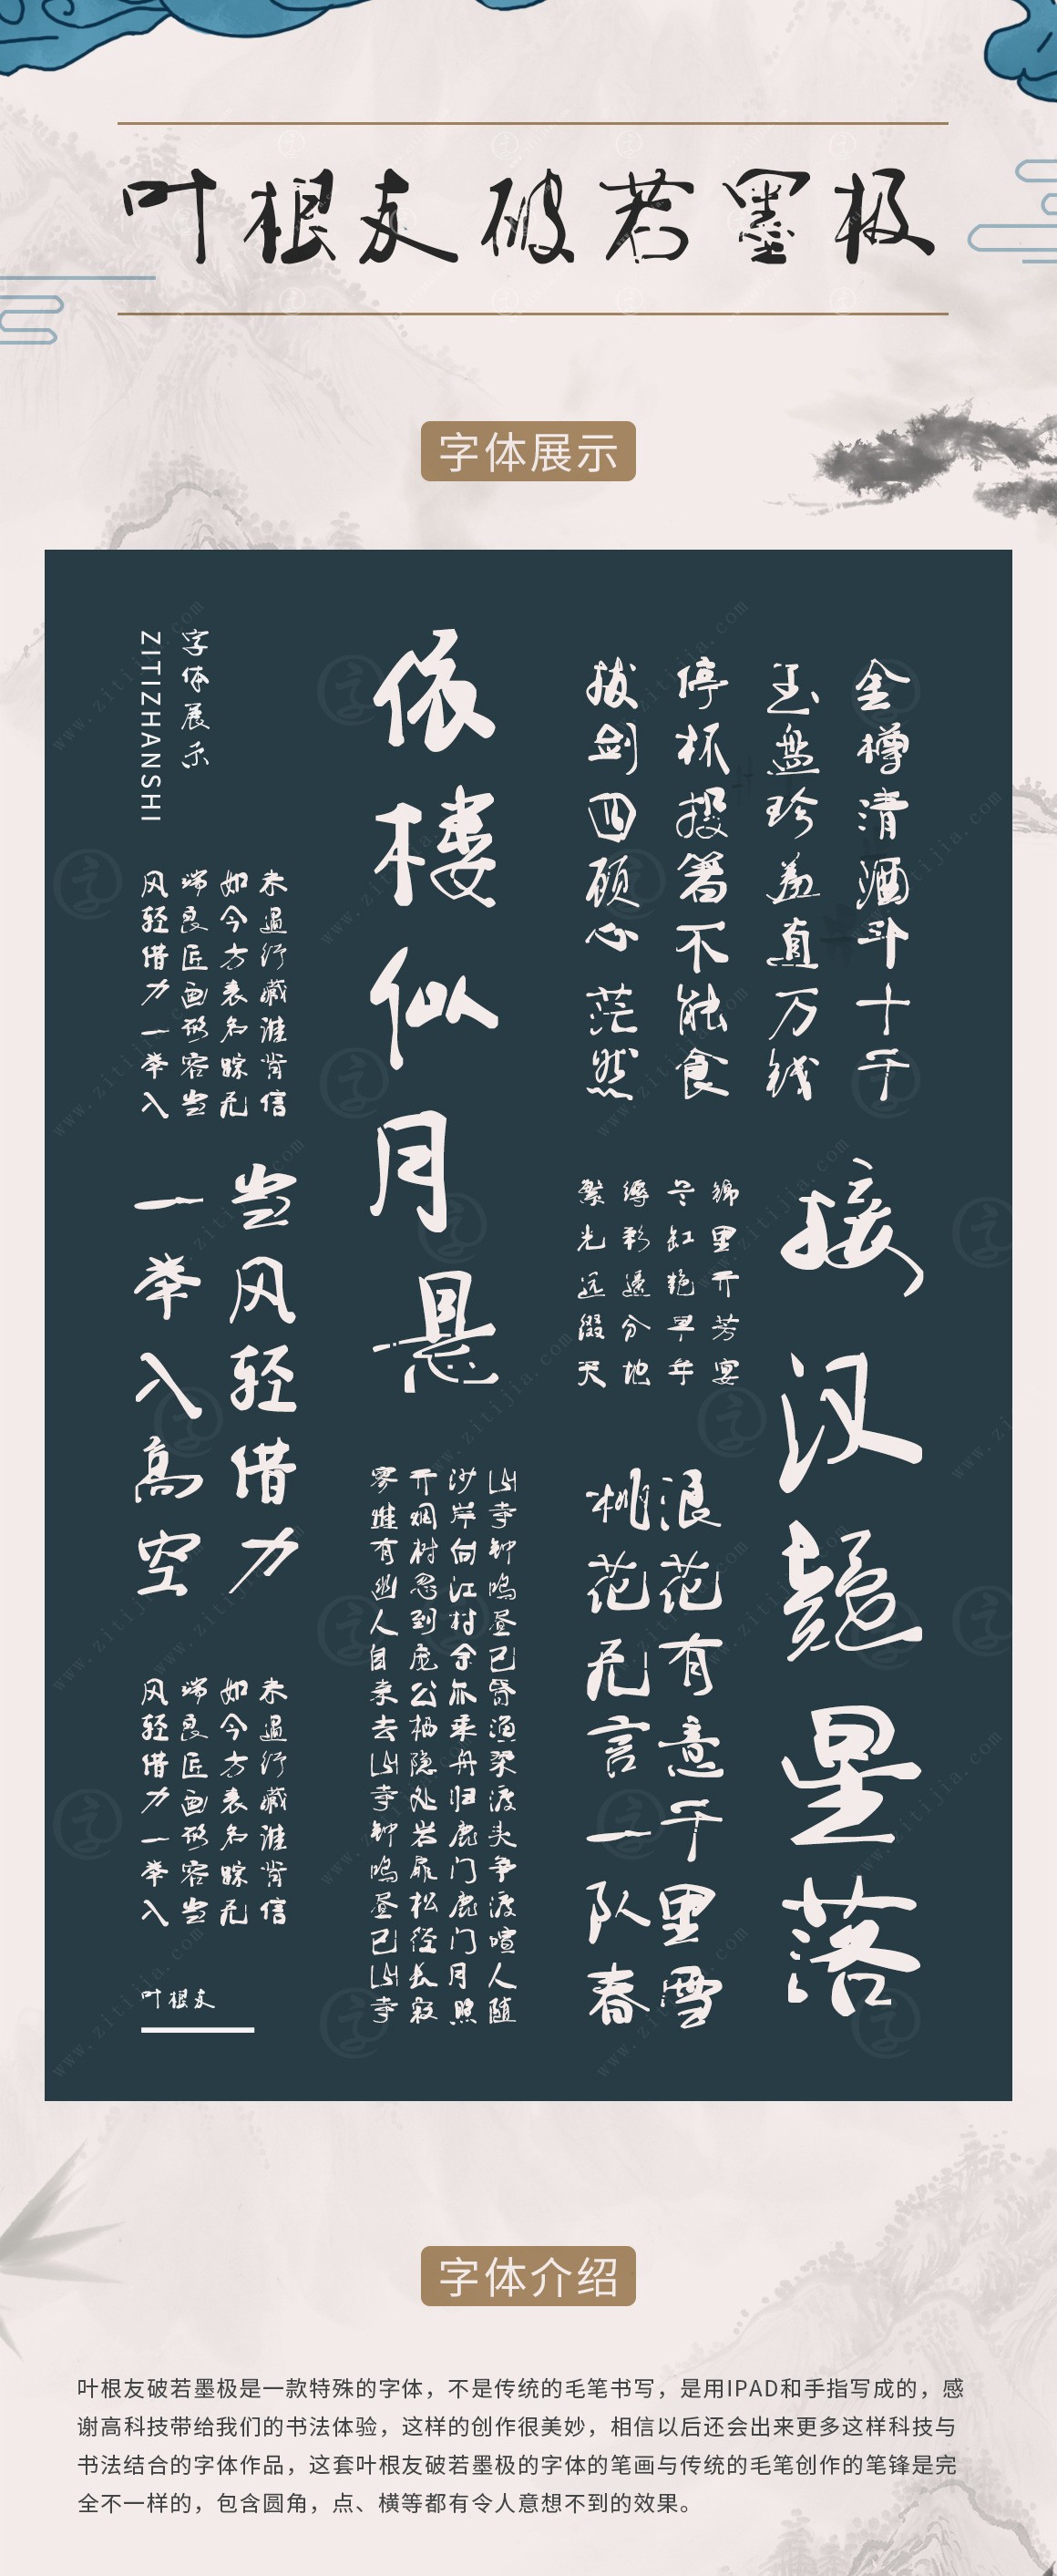 叶根友破若墨极
字体展示
金樽清酒斗十千
玉盘珍羞直万钱
停杯投箸不能食
拔剑四顾心茫然
接汉疑星落
锦里开芳宴
兰缸艳早年
缛彩遥分地
繁光远缀天
浪花有意千里雪
桃花无言一队春
依楼似月悬
山寺钟鸣昼已昏渔梁渡头争渡喧人随
沙岸向江村余亦乘舟归鹿门鹿门月照
开烟树忽到庞公栖隐处岩扉松径长寂
寥唯有幽人自来去山寺钟鸣昼已山寺
字体展示
ZITIZHANSHI
未遇行藏谁肯信
如今方表名踪无
端良匠画形容当
风轻借力一举入
当风轻借力
一举入高空
未遇行藏谁肯信
如今方表名踪无
端良匠画形容当
风轻借力一举入
叶根友
www.zitijia.com
字体介绍
叶根友破若墨极是一款特殊的字体，不是传统的毛笔书写，是用IPAD和手指写成的，感
谢高科技带给我们的书法体验，这样的创作很美妙，相信以后还会出来更多这样科技与
书法结合的字体作品，这套叶根友破若墨极的字体的笔画与传统的毛笔创作的笔锋是完
全不一样的，包含圆角，点、横等都有令人意想不到的效果。